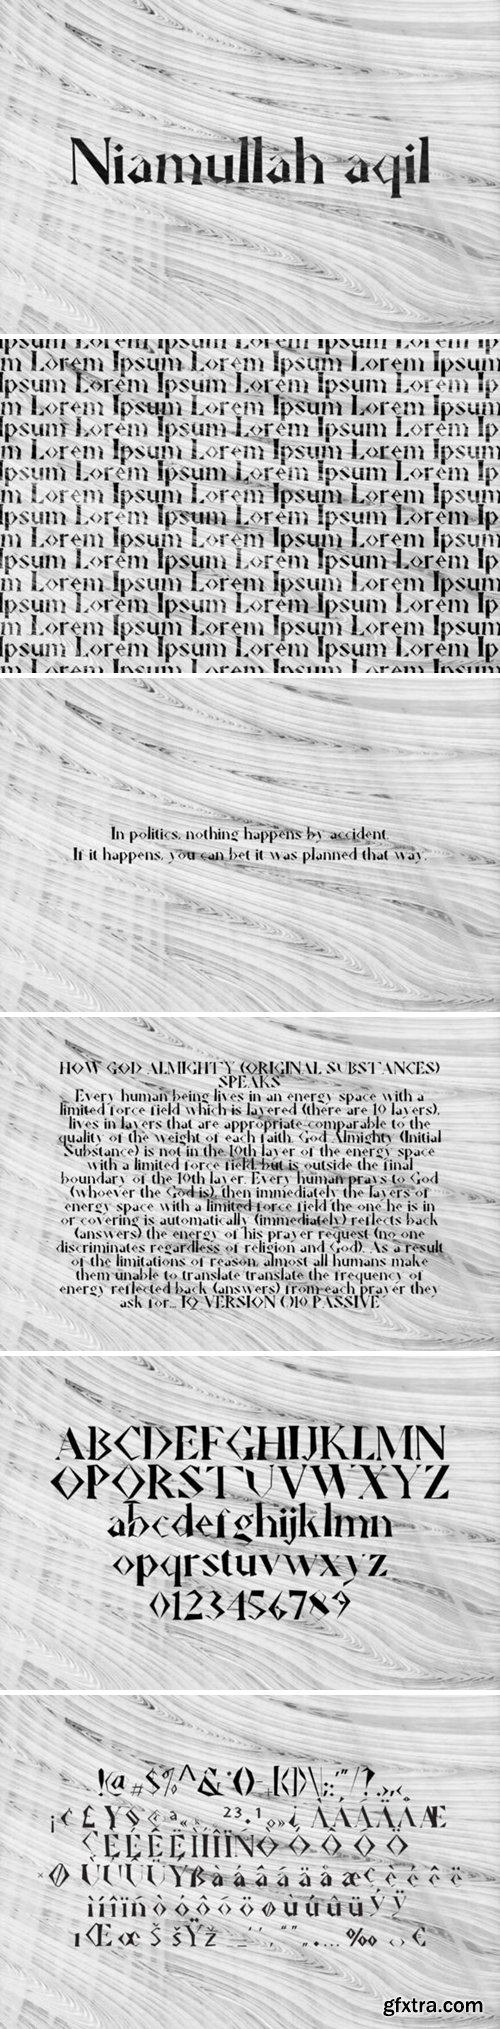 Niamullah aqil
Ipsum Lorem Ipsum Lorem Ipsum Lorem Ipsum
m Lorem Ipsum Lorem Ipsum Lorem Ipsum
Ipsum Lorem Ipsum Lorem Ipsum Lorem Ip
m Lorem Ipsum Lorem Ipsum Lorem Ipsum
Ipsum Lorem Ipsum Lorem Ipsum Lorem Ip
m Lorem Ipsum Lorem Ipsum Lorem Ipsum
Ipsum Lorem Ipsum Lorem Ipsum Lorem Ip
m Lorem Ipsum Lorem Ipsum Lorem Ipsum
Ipsum Lorem Ipsum Lorem Ipsum Lorem Ip
m Lorem Ipsum Lorem Ipsum Lorem Ipsum
Ipsum Lorem Ipsum Lorem Ipsum Lorem Ip
m Lorem Ipsum Lorem Ipsum Lorem Ipsum
Ipsum Lorem Ipsum Lorem Ipsum Lorem Ip
m Lorem Ipsum Lorem Ipsum Lorem Ipsum
Ipsum Lorem Ipsum Lorem Ipsum Lorem Ip
m Lorem Ipsum Lorem Ipsum Lorem Ipsum
In politics, nothing happens by accident.
If it happens, you can bet it was planned that way.
HOW GOD ALMIGHTY (ORIGINAL SUBSTANCES)
SPEAKS
Every human being lives in an energy space with a
limited force field which is layered (there are 10 layers),
lives in layers that are appropriate-comparable to the
quality of the weight of each faith. God Almighty (Initial
Substance) is not in the 10th layer of the energy space
with a limited force field, but is outside the final
boundary of the 10th layer. Every human prays to God
(whoever the God is), then immediately the layers of
energy space with a limited force field the one he is in
or covering is automatically (immediately) reflects back
(answers) the energy of his prayer request (no one
discriminates regardless of religion and God). As a result
of the limitations of reason, almost all humans make
them unable to translate translate the frequency of
energy reflected back (answers) from each prayer they
ask for... IQ VERSION 010 PASSIVE
ABCDEFGHIJKLMN
OPQRSTUVWXYZ
abcdefghijklmn
opqrstuvwxyz
0123456789
ÇÈÉÊËÌÍÎÏÑÒÓÔÕÖ
×ØÙÚÛÜÝßàáâãäåæçèéêë
ìíîïñòóôõöøùúûüýÿ
gfxtra.com